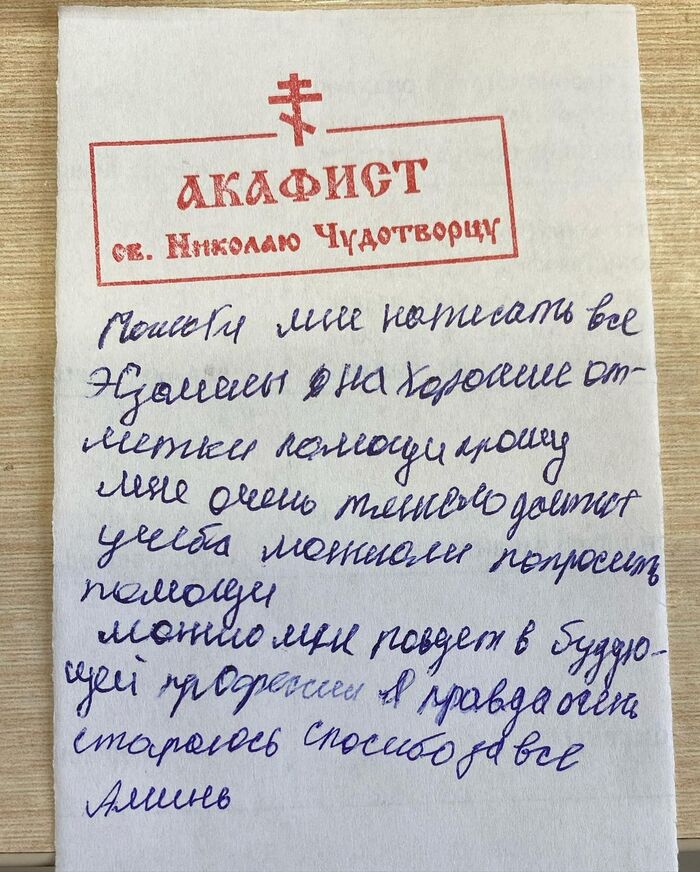 АКАФИСТ
св. Николаю Чудотворцу
Помоги мне написать все
Экзамены на хорошие от-
метки помощи прошу
мне очень тяжело дается
учеба можноли попросить
помощи
можно мне повдет в буддю-
щей профессии Я правда очень
стараюсь спасибо за все
Аминь